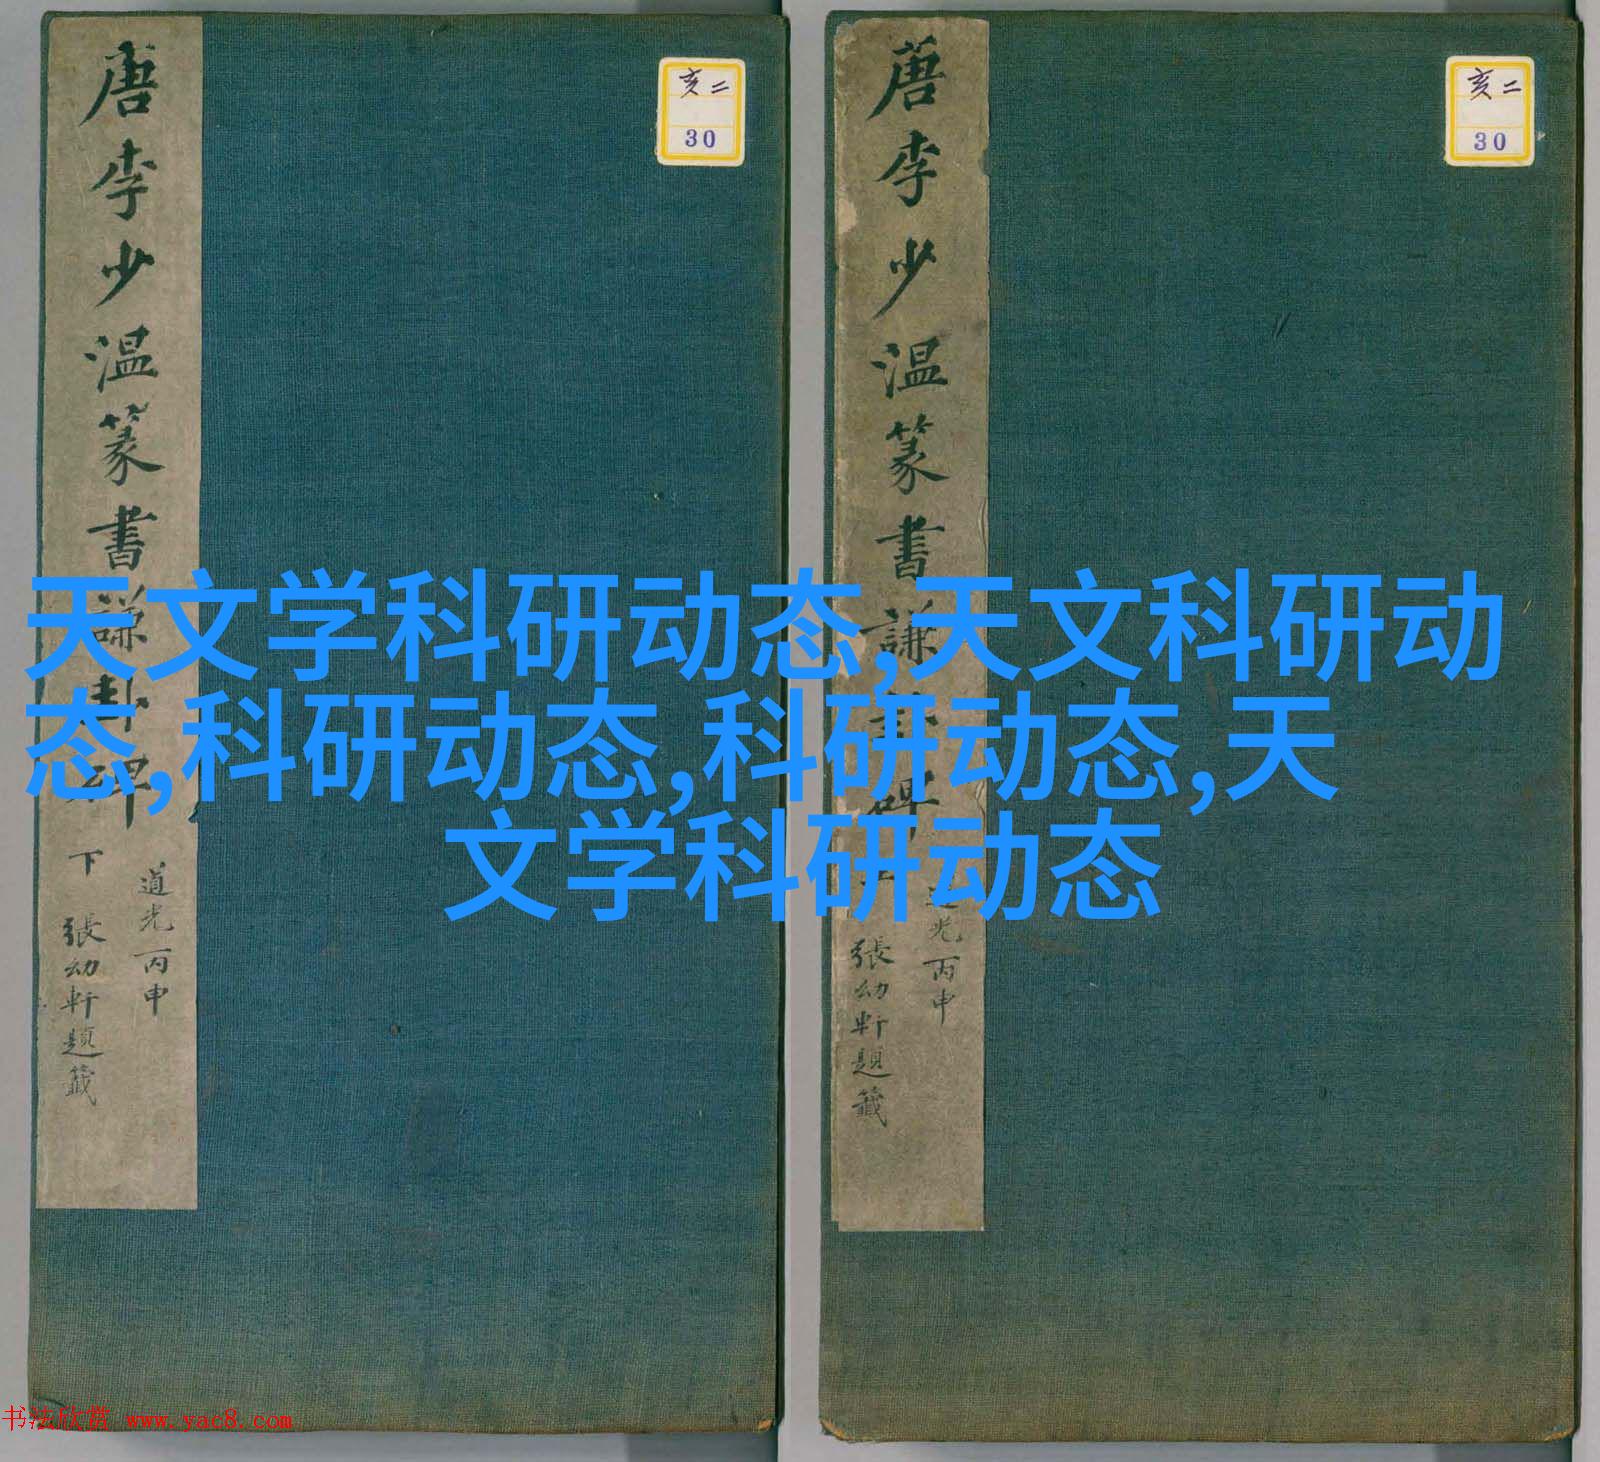 唐李少温篆書謙卦碑
下
道光丙申
張幼軒題籤
亥二
30
唐李少温篆書謙卦碑
道光丙申
張幼軒題籤
亥二
30
天文学科研动态,天文科研动
态,科研动态,科研动态,天
文学科研动态
书法欣赏 www.yac8.com